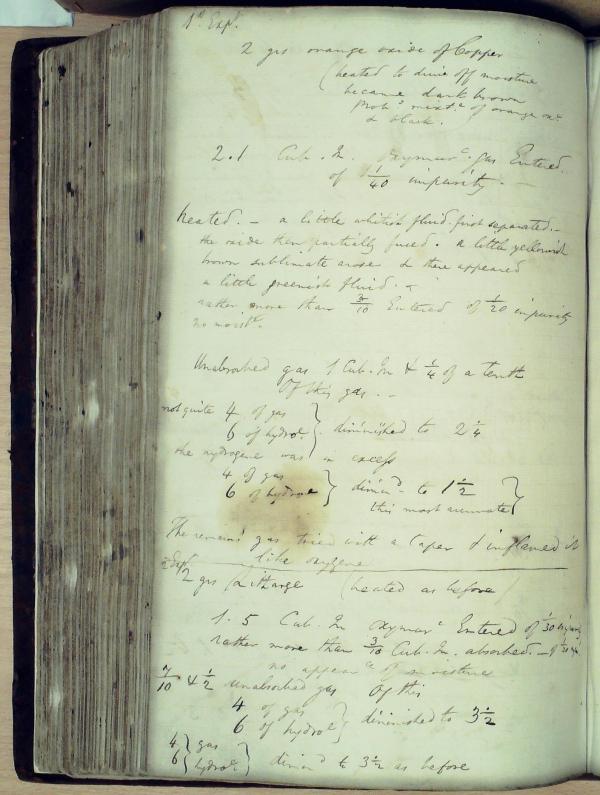 1st Expt.
2 grs orange oxide of Copper
(heated to drive off moisture
became dark brown
probly mixte of orange oxe
& black.
2.1 Cub. In. oxymurc. gas Entered.
of 1/40 impurity. -
heated. - a little whitish fluid first separated. -
the oxide then partially fused. a little yellowish
brown sublimate arose & there appeared
a little greenish fluid. -
rather more than 3/10 Entered of 1/20 impurity
no moiste.
Unabsorbed gas 1 Cub. In & 1/4 of a tenth
Of this gas. - -
not quite 4 of gas
6 of hydroe. } diminished to 2 1/4
the hydrogene was in excess
4 of gas
6 of hydroe } dimind. to 1 1/2 }
this most accurate
The remaing gas tried with a taper & inflamed it
like oxygene
2 Expt
2 grs Litharge (heated as before)
1.5 Cub. In oxymurc Entered of 1/30 impurity
rather more than 3/10 Cub. In. absorbed. - of 1/30
no appearce of moisture
7/10 & 1/2 unabsorbed gas Of this
4 of gas
6 of hydroe } diminished to 3 1/2
4 } gas
6 } hydroe. } dimind to 3 1/2 as before